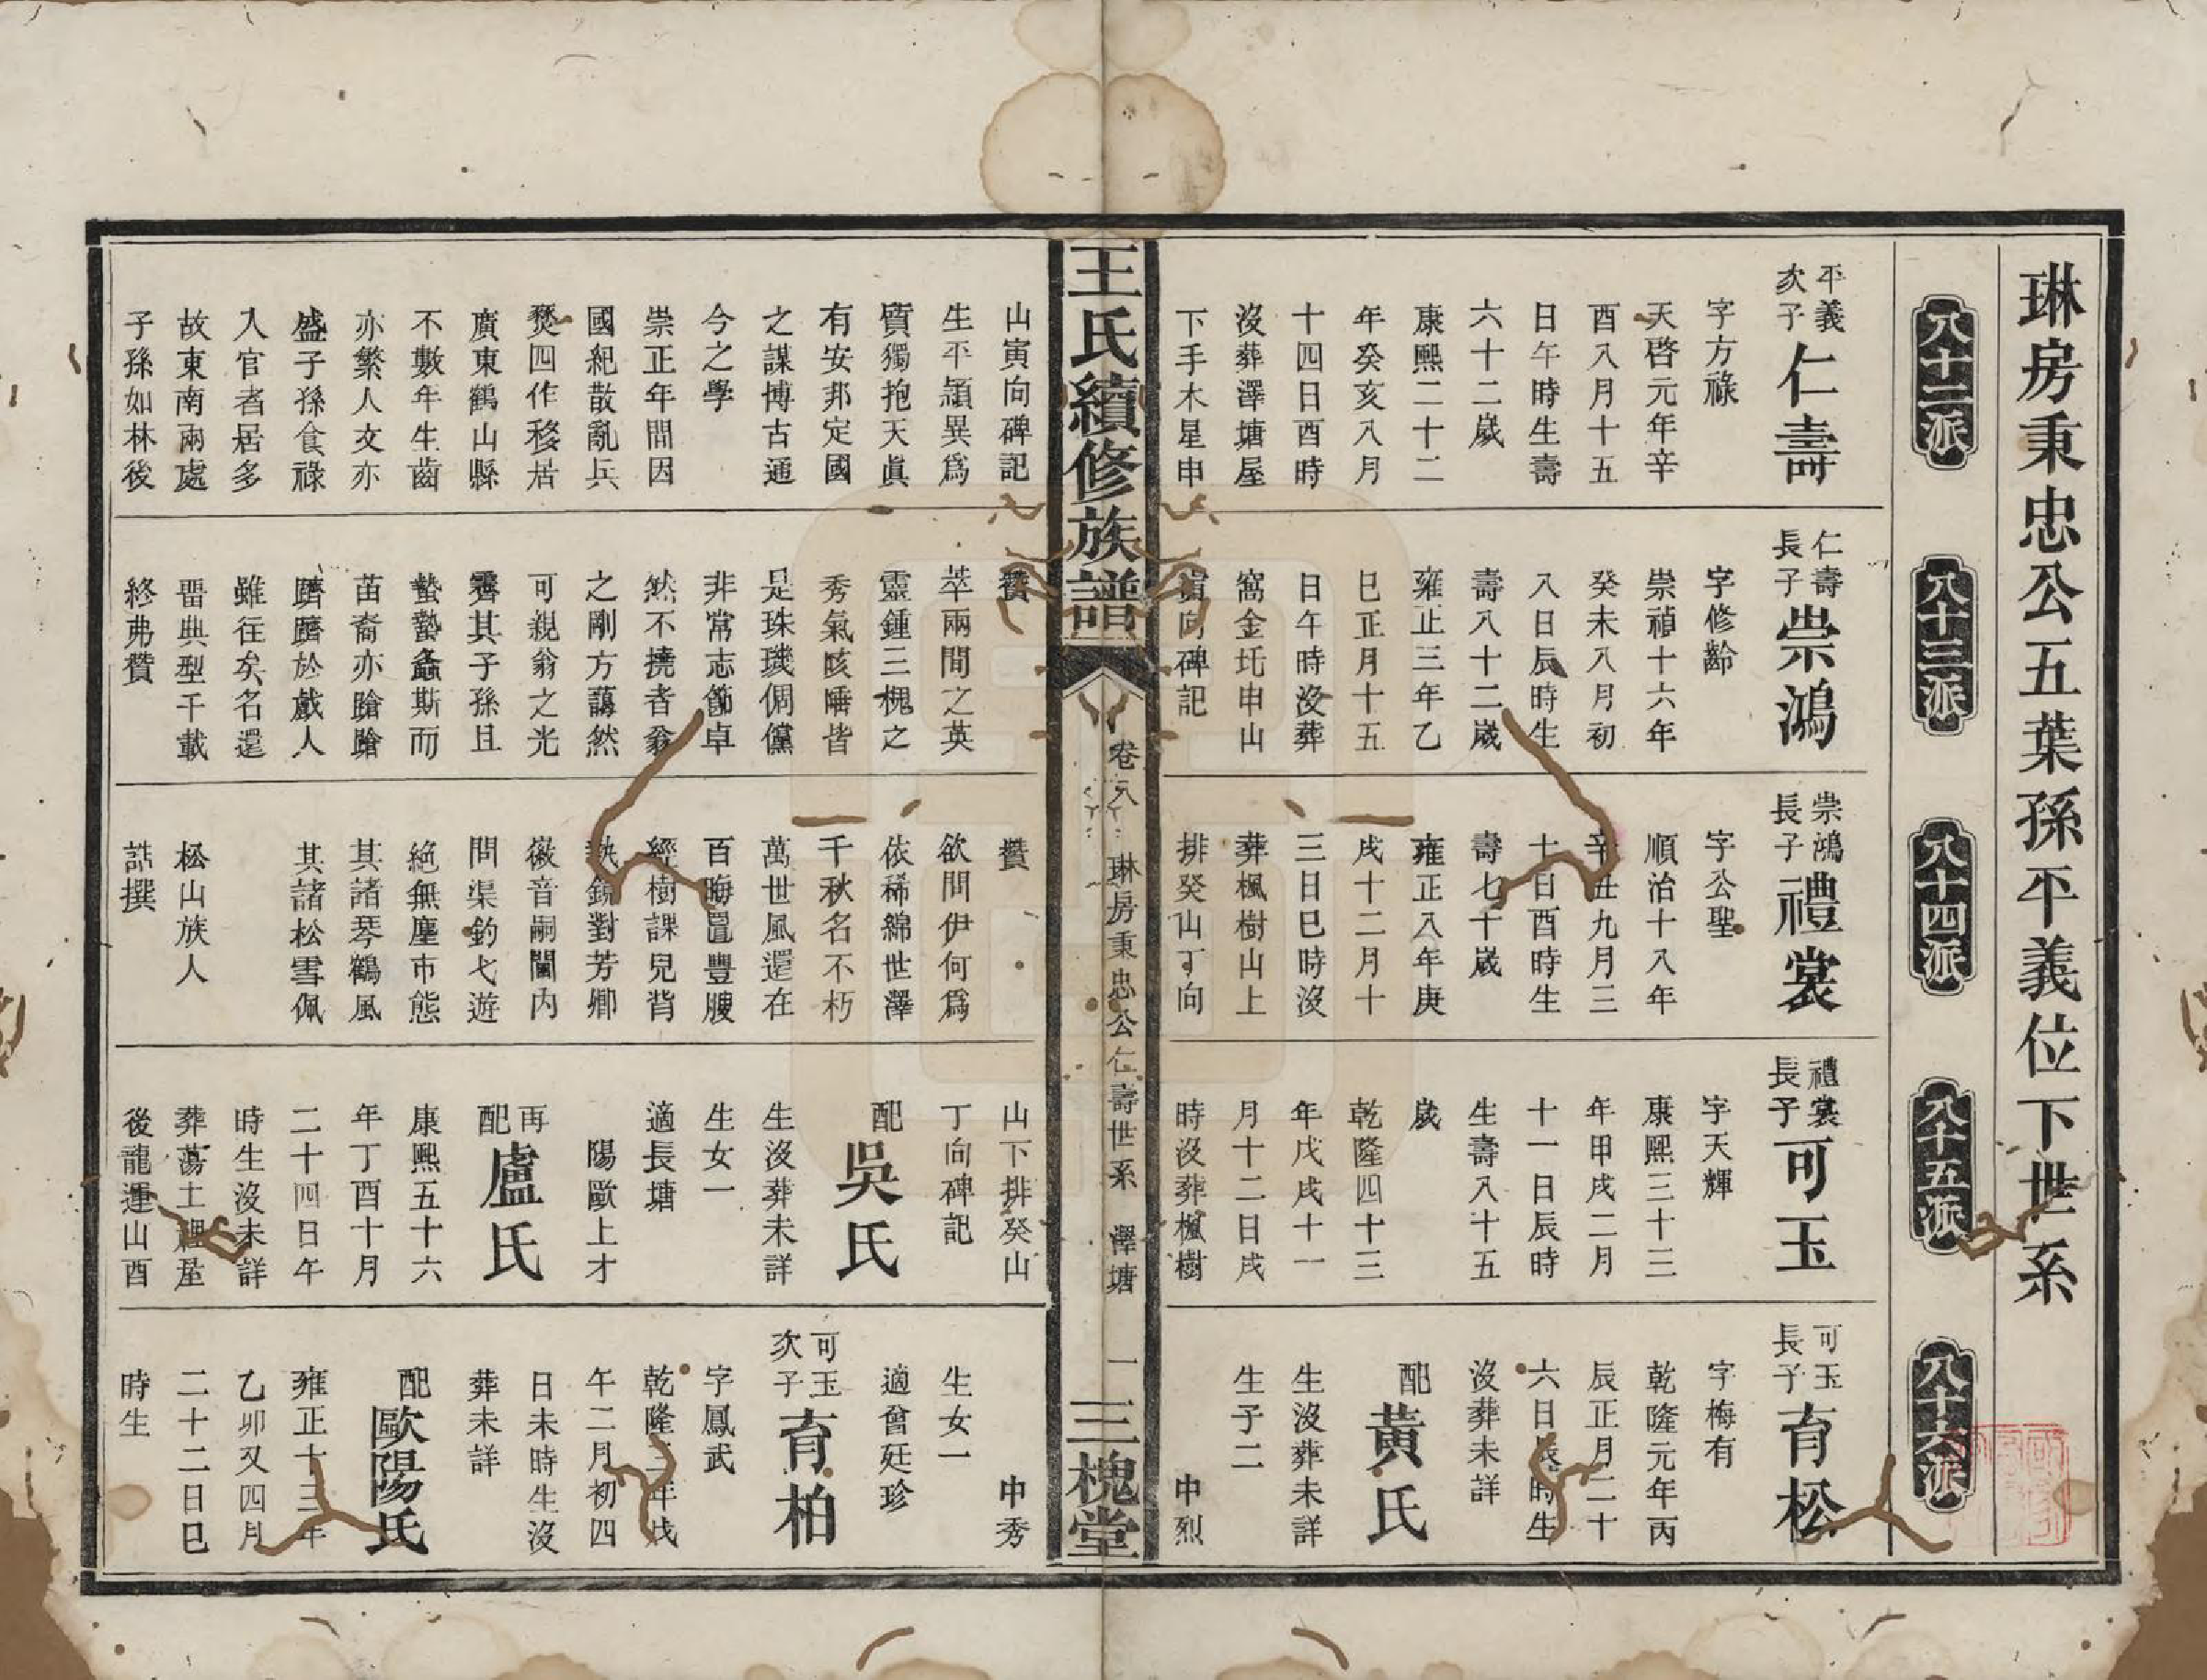 琳房秉忠公五葉孫平義位下世系
八十二派
八十三派
八十四派
八十五派
八十六派
平義
次子
仁壽
字方祿
天啓元年辛
酉八月十五
日午時生壽
六十二歲
康熙二十二
年癸亥八月
十四日酉時
沒葬澤塘屋
下手木星申
仁壽
長子
崇鴻
字修齡
崇禎十六年
癸未八月初
八日辰時生
壽八十二歲
雍正三年乙
巳正月十五
日午時沒葬
窩金坵申山
寅向碑記
崇鴻
長子
禮裳
字公聖
順治十八年
辛丑九月三
十日酉時生
壽七十歲
雍正八年庚
戌十二月十
三日巳時沒
葬楓樹山上
排癸山丁向
禮裳
長子
可玉
字天輝
康熙三十三
年甲戌二月
十一日辰時
生壽八十五
歲
乾隆四十三
年戊戌十一
月十二日戌
時沒葬楓樹
可玉
長子
育松
字梅有
乾隆元年丙
辰正月二十
六日時生
沒葬未詳
配
黃氏
生沒葬未詳
生子二
中烈
王氏續修族譜
卷八
琳房秉忠公仁壽世系
澤塘
一
三槐堂
山寅向碑記
生平穎異爲
質獨抱天眞
有安邦定國
之謀博古通
今之學
崇正年間因
國紀散亂兵
燹四作移居
廣東鶴山縣
不數年生齒
亦繁人文亦
盛子孫食祿
入官者居多
故東南兩處
子孫如林後
贊
萃兩間之英
靈鍾三槐之
秀氣咳唾皆
是珠璣倜儻
非常志節卓
然不撓者翁
之剛方藹然
可親翁之光
霽其子孫且
蟄蟄螽斯而
苗裔亦蹌蹌
躋躋於戲人
雖往矣名還
畱典型千載
終弗贊
贊
欲問伊何爲
依稀綿世澤
千秋名不朽
萬世風還在
百晦畱豐腴
經樹課兒背
對芳卿
徽音嗣閫內
問渠釣弋遊
絕無塵市態
其諸琴鶴風
其諸松雪佩
松山族人
誥撰
山下排癸山
丁向碑記
配
吳氏
生沒葬未詳
生女一
適長塘
陽歐上才
再
配
盧氏
康熙五十六
年丁酉十月
二十四日午
時生沒未詳
葬蕩土裡星
後龍運山酉
中秀
生女一
適曾廷珍
可玉
次子
育柏
字鳳武
乾隆三年戊
午二月初四
日未時生沒
葬未詳
配
歐陽氏
雍正十三年
乙卯又四月
二十二日巳
時生